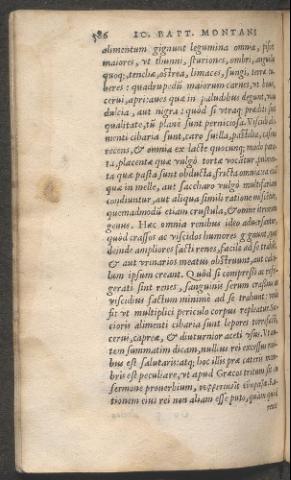 586 IO. BAPT. MONTANI
alimentum gignunt legumina omnia, pisces
maiores, vt thunni, sturiones, ombri, anguillæ
quoq;, tenchæ, ostrea, limaces, fungi, terræ tu
beres: quadrupedũ maiorum carnes, vt boues,
cerui, apri: aues quæ in paludibus degunt, vina
dulcia, aut nigra: quòd si vtraq; prædita sint
qualitate, tũ planè sunt perniciosa. Viscidi ali-
menti cibaria sunt, caro suilla, pistilia, caseus
recens, & omnia ex lacte quocunq; modo para
ta, placentæ quæ vulgò tortæ vocãtur, pulmen
ta quæ pasta sunt obducta, fructa omnia: ea etiã
quæ in melle, aut saccharo vulgò multifariam
condiuntur, aut aliqua simili ratione miscentur,
quemadmodũ etiam crustula, & omne itrion
genus. Hæc omnia renibus ideo aduersantur,
quòd crassos ac viscidos humores gignunt, quos
deinde ampliores facti renes, facilè ad se trahũt,
& aut vrinarios meatus obstruunt, aut calcu-
lum ipsum creant. Quòd si compressi ac refri-
gerati sint renes, sanguinis serum crassius ac
viscidius factum minimè ad se trahunt: vnde
fit vt multiplici periculo corpus repleatur. Se-
cioris alimenti cibaria sunt lepores torrefacti,
cerui, capreæ, & diuturnior aceti vsus. Vt au-
tem summatim dicam, nullius rei excessus reni-
bus est salutaris: atq; hoc illis præ cæteris mem
bris est peculiare, vt apud Græcos tritum sit in
sermone prouerbium, Ra-
tionem eius rei non aliam esse puto, quàm quod